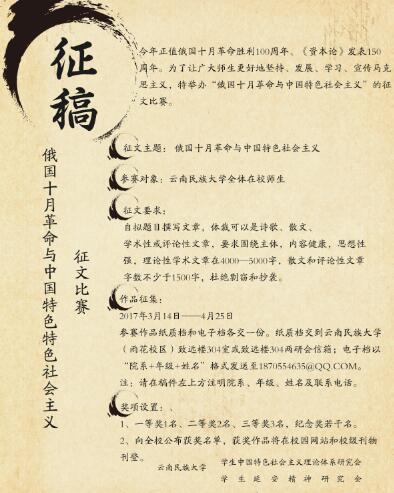 征稿
俄国十月革命与中国特色特色社会主义
征文比赛
今年正值俄国十月革命胜利100周年、《资本论》发表150
周年。为了让广大师生更好地坚持、发展、学习、宣传马克
思主义，特举办“俄国十月革命与中国特色社会主义”的征
文比赛。
征文主题：俄国十月革命与中国特色社会主义
参赛对象：云南民族大学全体在校师生
征文要求：
自拟题目撰写文章，体裁可以是诗歌、散文、
学术性或评论性文章，要求围绕主体，内容健康，思想性
强，理论性学术文章在4000—5000字，散文和评论性文章
字数不少于1500字，杜绝剽窃和抄袭。
作品征集：
2017年3月14日——4月25日
参赛作品纸质档和电子档各交一份。纸质档交到云南民族大学
（雨花校区）致远楼304室或致远楼304两研会信箱；电子档以
“院系+年级+姓名”格式发送至1870554635@QQ.COM。
注：请在稿件左上方注明院系、年级、姓名及联系电话。
奖项设置：、
1、一等奖1名、二等奖2名、三等奖3名，纪念奖若干名。
2、向全校公布获奖名单，获奖作品将在校园网站和校级刊物
刊登。
云南民族大学 学生中国特色社会主义理论体系研究会
学生延安精神研究会